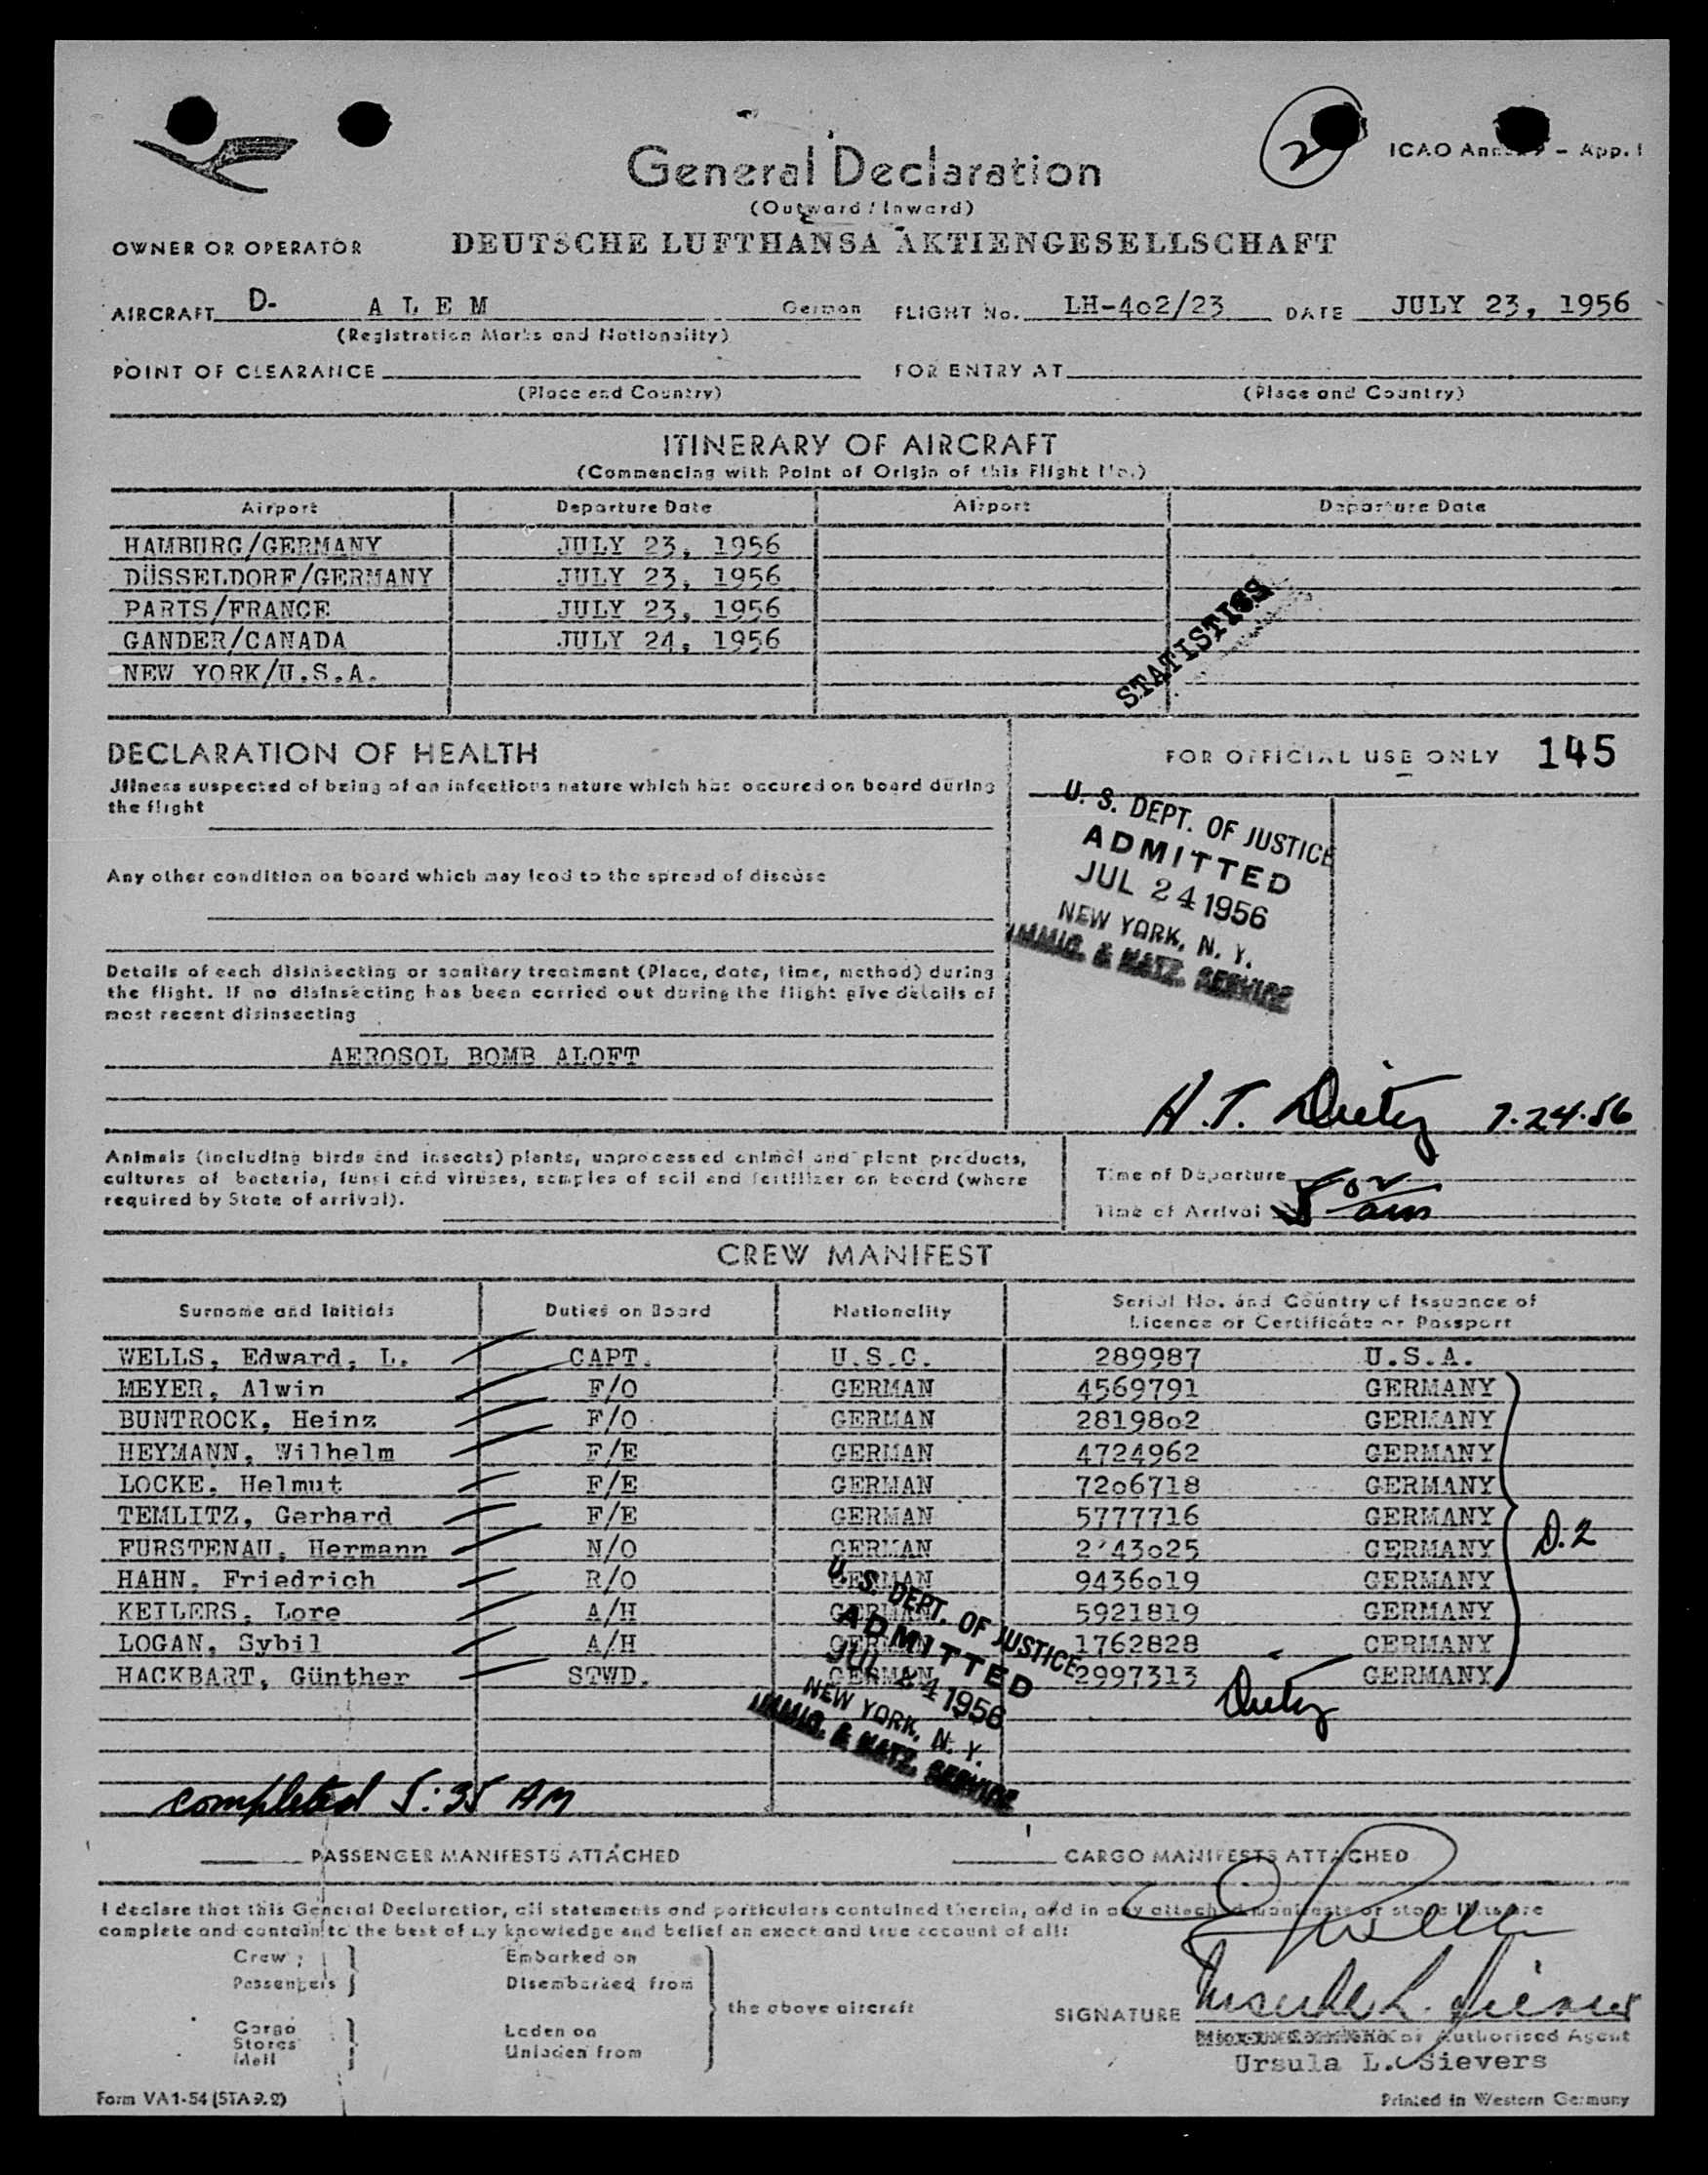 2
ICAO Annex 9 - App. 1
General Declaration
(Outward / Inward)
OWNER OR OPERATOR DEUTSCHE LUFTHANSA AKTIENGESELLSCHAFT
AIRCRAFT D- A L E M German FLIGHT No. LH-4o2/23 DATE JULY 23, 1956
(Registration Marks and Nationality)
POINT OF CLEARANCE FOR ENTRY AT
(Place and Country) (Place and Country)
ITINERARY OF AIRCRAFT
(Commencing with Point of Origin of this Flight No.)
Airport Departure Date Airport Departure Date
HAMBURG/GERMANY JULY 23, 1956
DÜSSELDORF/GERMANY JULY 23, 1956
PARIS/FRANCE JULY 23, 1956
GANDER/CANADA JULY 24, 1956
NEW YORK/U.S.A.
STATISTICS
DECLARATION OF HEALTH
FOR OFFICIAL USE ONLY 145
Jllness suspected of being of an infectious nature which has occured on board during
the flight
Any other condition on board which may lead to the spread of disease
Details of each disinsecting or sanitary treatment (Place, date, time, method) during
the flight. If no disinsecting has been carried out during the flight give details of
most recent disinsecting
AEROSOL BOMB ALOFT
U. S. DEPT. OF JUSTICE
ADMITTED
JUL 24 1956
NEW YORK, N. Y.
IMMIG. & NATZ. SERVICE
H.T. Dietz 7.24.56
Animals (including birds and insects) plants, unprocessed animal and plant products,
cultures of bacteria, fungi and viruses, samples of soil and fertilizer on board (where
required by State of arrival).
Time of Departure
Time of Arrival 5 02 am
CREW MANIFEST
Surname and Initials Duties on Board Nationality Serial No. and Country of Issuance of
Licence or Certificate or Passport
WELLS, Edward, L. CAPT. U.S.C. 289987 U.S.A.
MEYER, Alwin F/O GERMAN 4569791 GERMANY
BUNTROCK, Heinz F/O GERMAN 28198o2 GERMANY
HEYMANN, Wilhelm F/E GERMAN 4724962 GERMANY
LOCKE, Helmut F/E GERMAN 72o6718 GERMANY
TEMLITZ, Gerhard F/E GERMAN 5777716 GERMANY
FURSTENAU, Hermann N/O GERMAN 2'43o25 GERMANY
HAHN, Friedrich R/O GERMAN 9436o19 GERMANY
KEILERS, Lore A/H GERMAN 5921819 GERMANY
LOGAN, Sybil A/H GERMAN 1762828 GERMANY
HACKBART, Günther STWD. GERMAN 2997313 GERMANY
D.2
Dietz
U. S. DEPT. OF JUSTICE
ADMITTED
JUL 24 1956
NEW YORK, N. Y.
IMMIG. & NATZ. SERVICE
completed 5:35 AM
PASSENGER MANIFESTS ATTACHED CARGO MANIFESTS ATTACHED
I declare that this General Declaration, all statements and particulars contained therein, and in any attached manifests or stores lists are
complete and contain to the best of my knowledge and belief an exact and true account of all:
Crew Embarked on
Passengers Disembarked from
the above aircraft
Cargo Laden on
Stores Unladen from
Mail
SIGNATURE Ursula L. Sievers
or Authorised Agent
Ursula L. Sievers
Form VA1-54 (STA 9.2) Printed in Western Germany